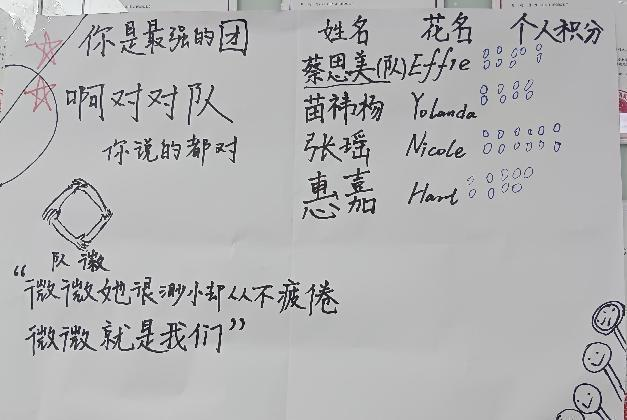 你是最强的团
啊对对队
你说的都对
队徽
“微微她很渺小却从不疲倦
微微就是我们”
姓名 花名 个人积分
蔡思美(队) Effie
苗祎杨 Yolanda
张瑶 Nicole
惠嘉